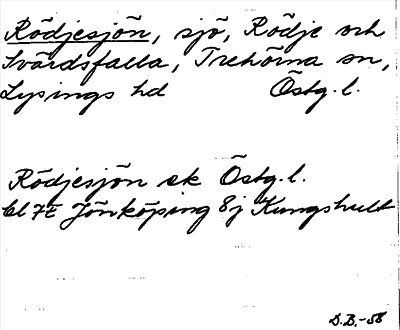 Rödjesjön, sjö, Rödje och
Svärdsfalla, Trehörna sn,
Lysings hd Östg. l.
Rödjesjön sk Östg. l.
bl 7E Jönköping 8j Kungshult
D.B.-58